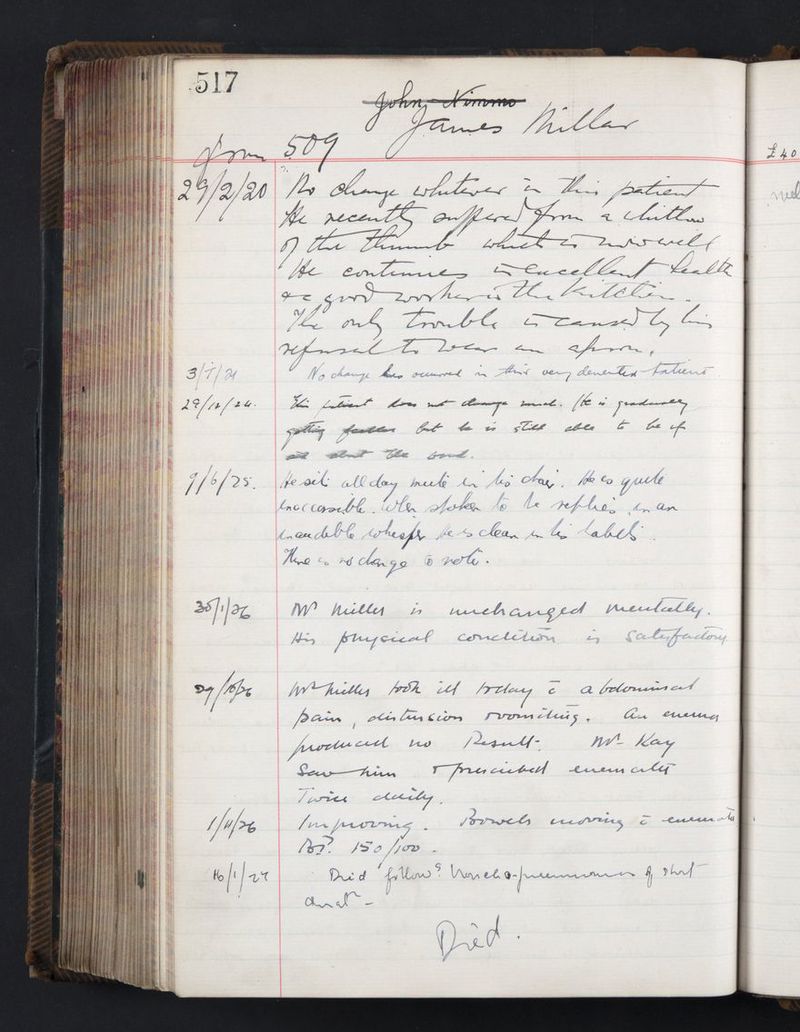 517
John Nimmo
James Millar
from 509
29/2/20 No change whatever in this patient
He recently suffered from a whitlow
of the thumb which is now well
He continues in excellent health
& a good worker in the kitchen.
The only trouble is caused by his
refusal to wear an apron.
No change has occurred in this very demented patient
29/12/24. This patient does not change much. He is gradually
getting feebler but he is still able to be up
and about the ward.
9/6/25. He sits all day mute in his chair. He is quite
inaccessible. When spoken to he replies in an
inaudible whisper he is clean in his habits.
There is no change to note.
30/1/26 Mr Miller is unchanged mentally.
His physical condition is satisfactory
29/10/26 Mr Miller took ill today c̄ abdominal
pain, distension & vomiting. An enema
produced no Result. Mr Kay
saw him & prescribed enemata
Twice daily.
1/11/26 Improving. Bowels moving c̄ enemata.
B.P. 150/100.
16/1/27 Died followg Broncho-pneumonia of short
duratn –
Died.
£40